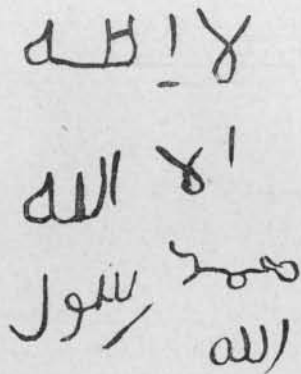 لا إله
الا الله
محمد رسول
الله